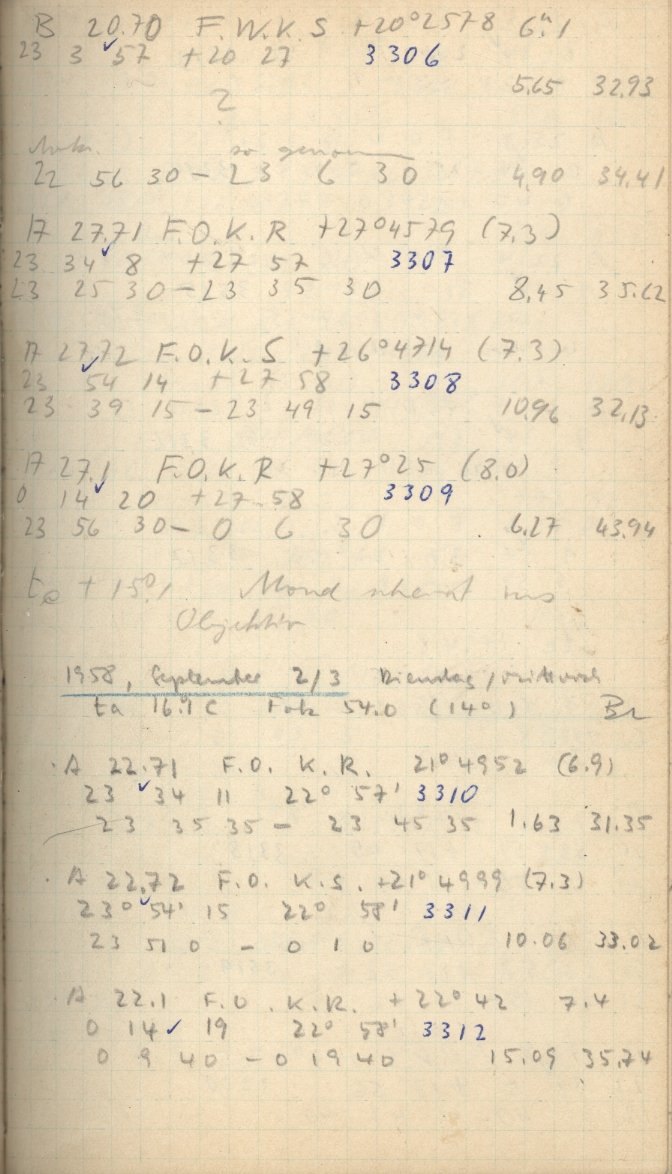 B 20.70 F.W.K.S +20°2578 6m.1
23 3 57 +20 27 3306
5,65 32.93
?
so genom
22 56 30 - 23 6 30 4,90 34.41
A 27.71 F.O.K.R +27°4579 (7.3)
23 34 8 +27 57 3307
23 25 30 - 23 35 30 8,45 35.62
A 27.72 F.O.K.S +26°4714 (7.3)
23 54 14 +27 58 3308
23 39 15 - 23 49 15 10.96 32.13
A 27.1 F.O.K.R +27°25 (8.0)
0 14 20 +27 58 3309
23 56 30 - 0 6 30 6.27 43.94
+15°.1 Mond scheint ins
Objektiv
1958, September 2/3 Dienstag/Mittwoch
ta 16.1 C Fok 54.0 (14°) Br
A 22.71 F.O. K.R. 21° 4952 (6.9)
23 ✓ 34 11 22° 57' 3310
23 35 35 - 23 45 35 1.63 31.35
A 22.72 F.O. K.S. +21° 4999 (7.3)
23° 54' 15 22° 58' 3311
23 51 0 - 0 1 0 10.06 33.02
A 22.1 F.O. K.R. +22° 42 7.4
0 14 ✓ 19 22° 58' 3312
0 9 40 - 0 19 40 15.09 35.74